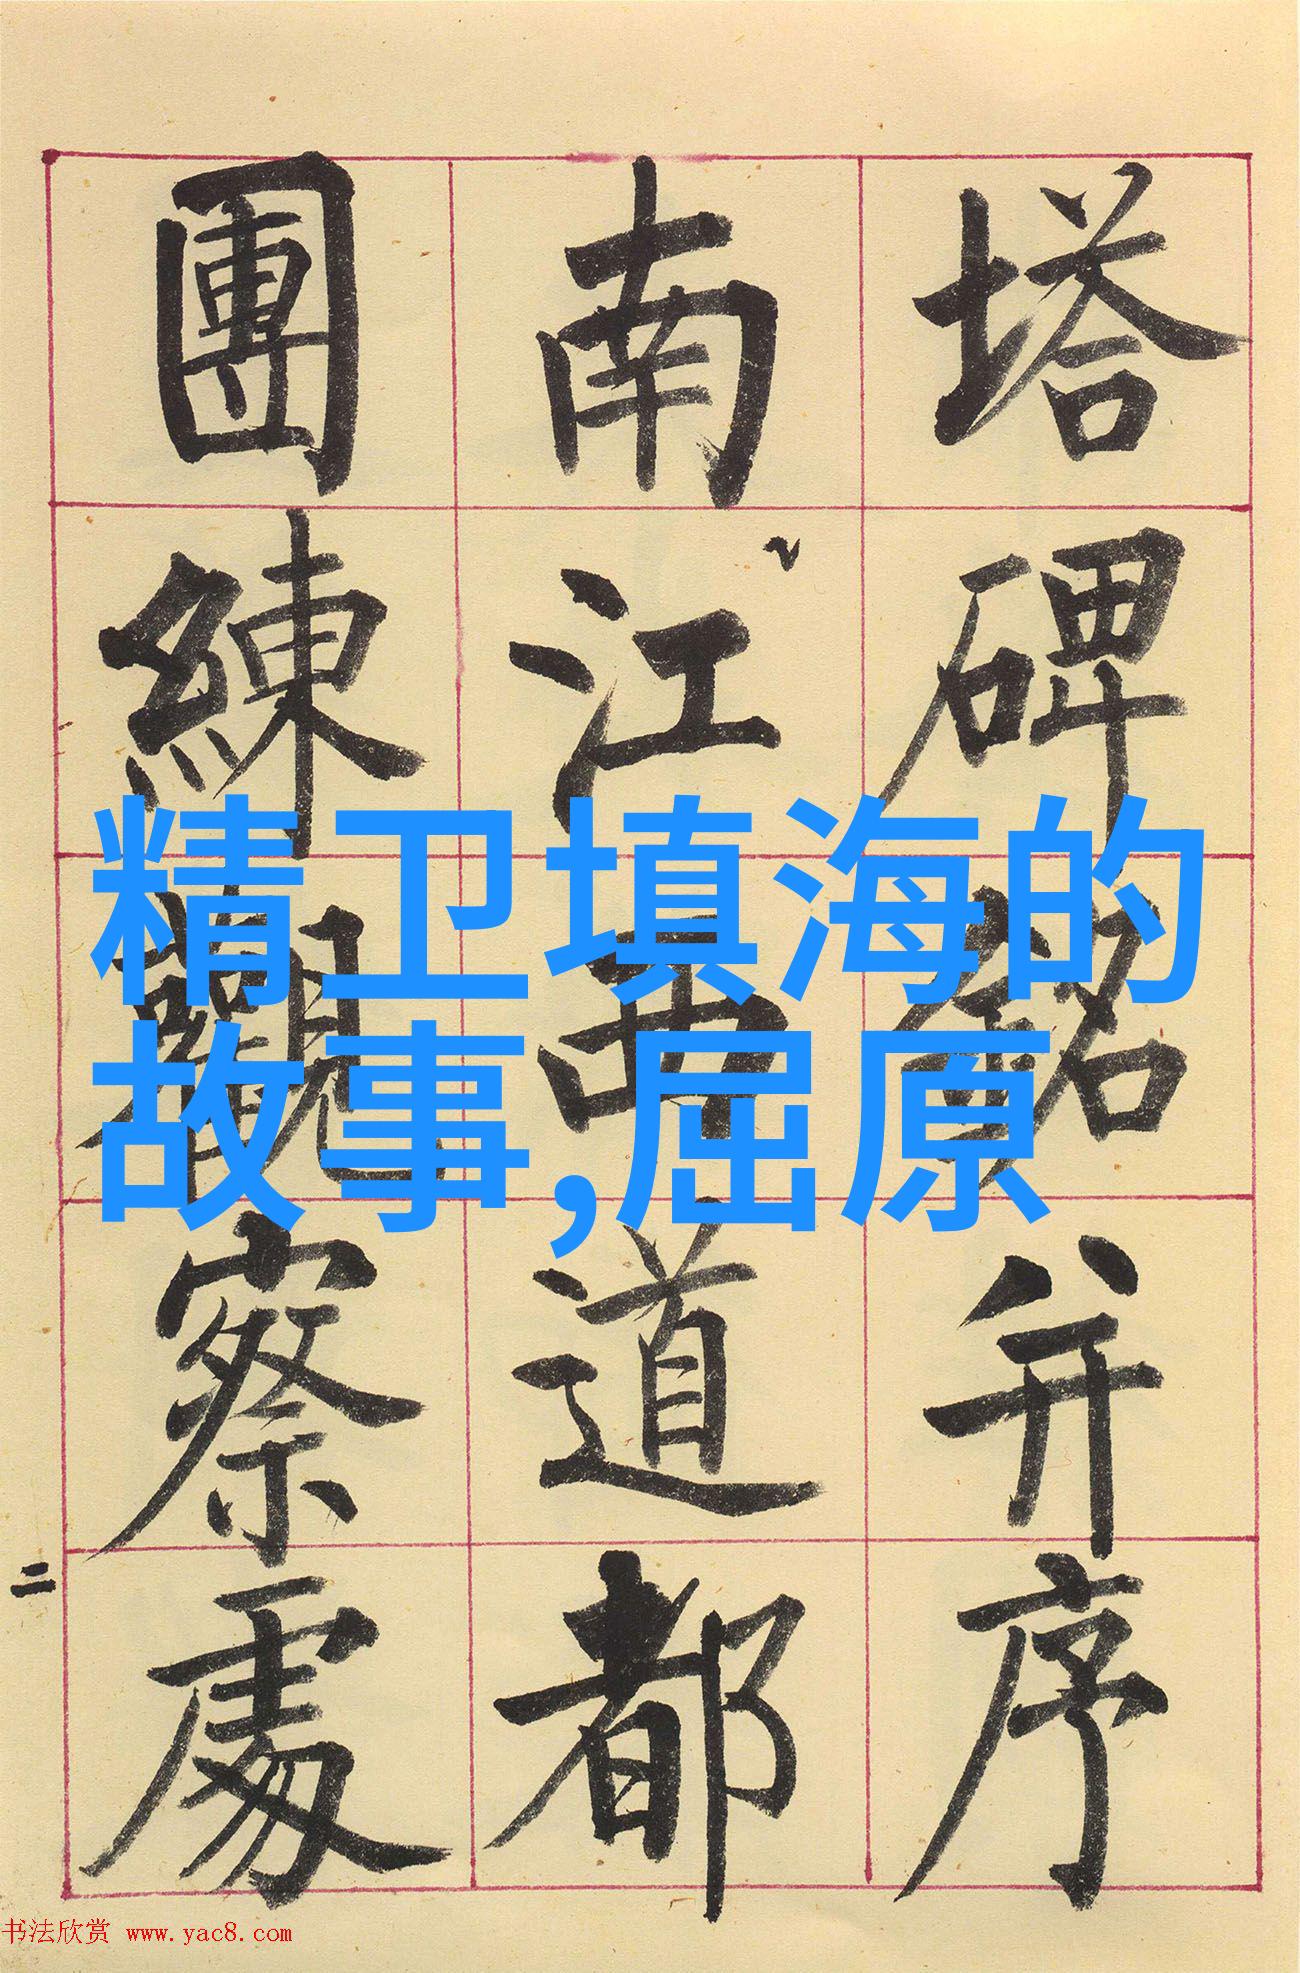 塔碑銘并序
南江西道都
團練觀察處
二
精卫填海的
故事,屈原
书法欣赏 www.yac8.com